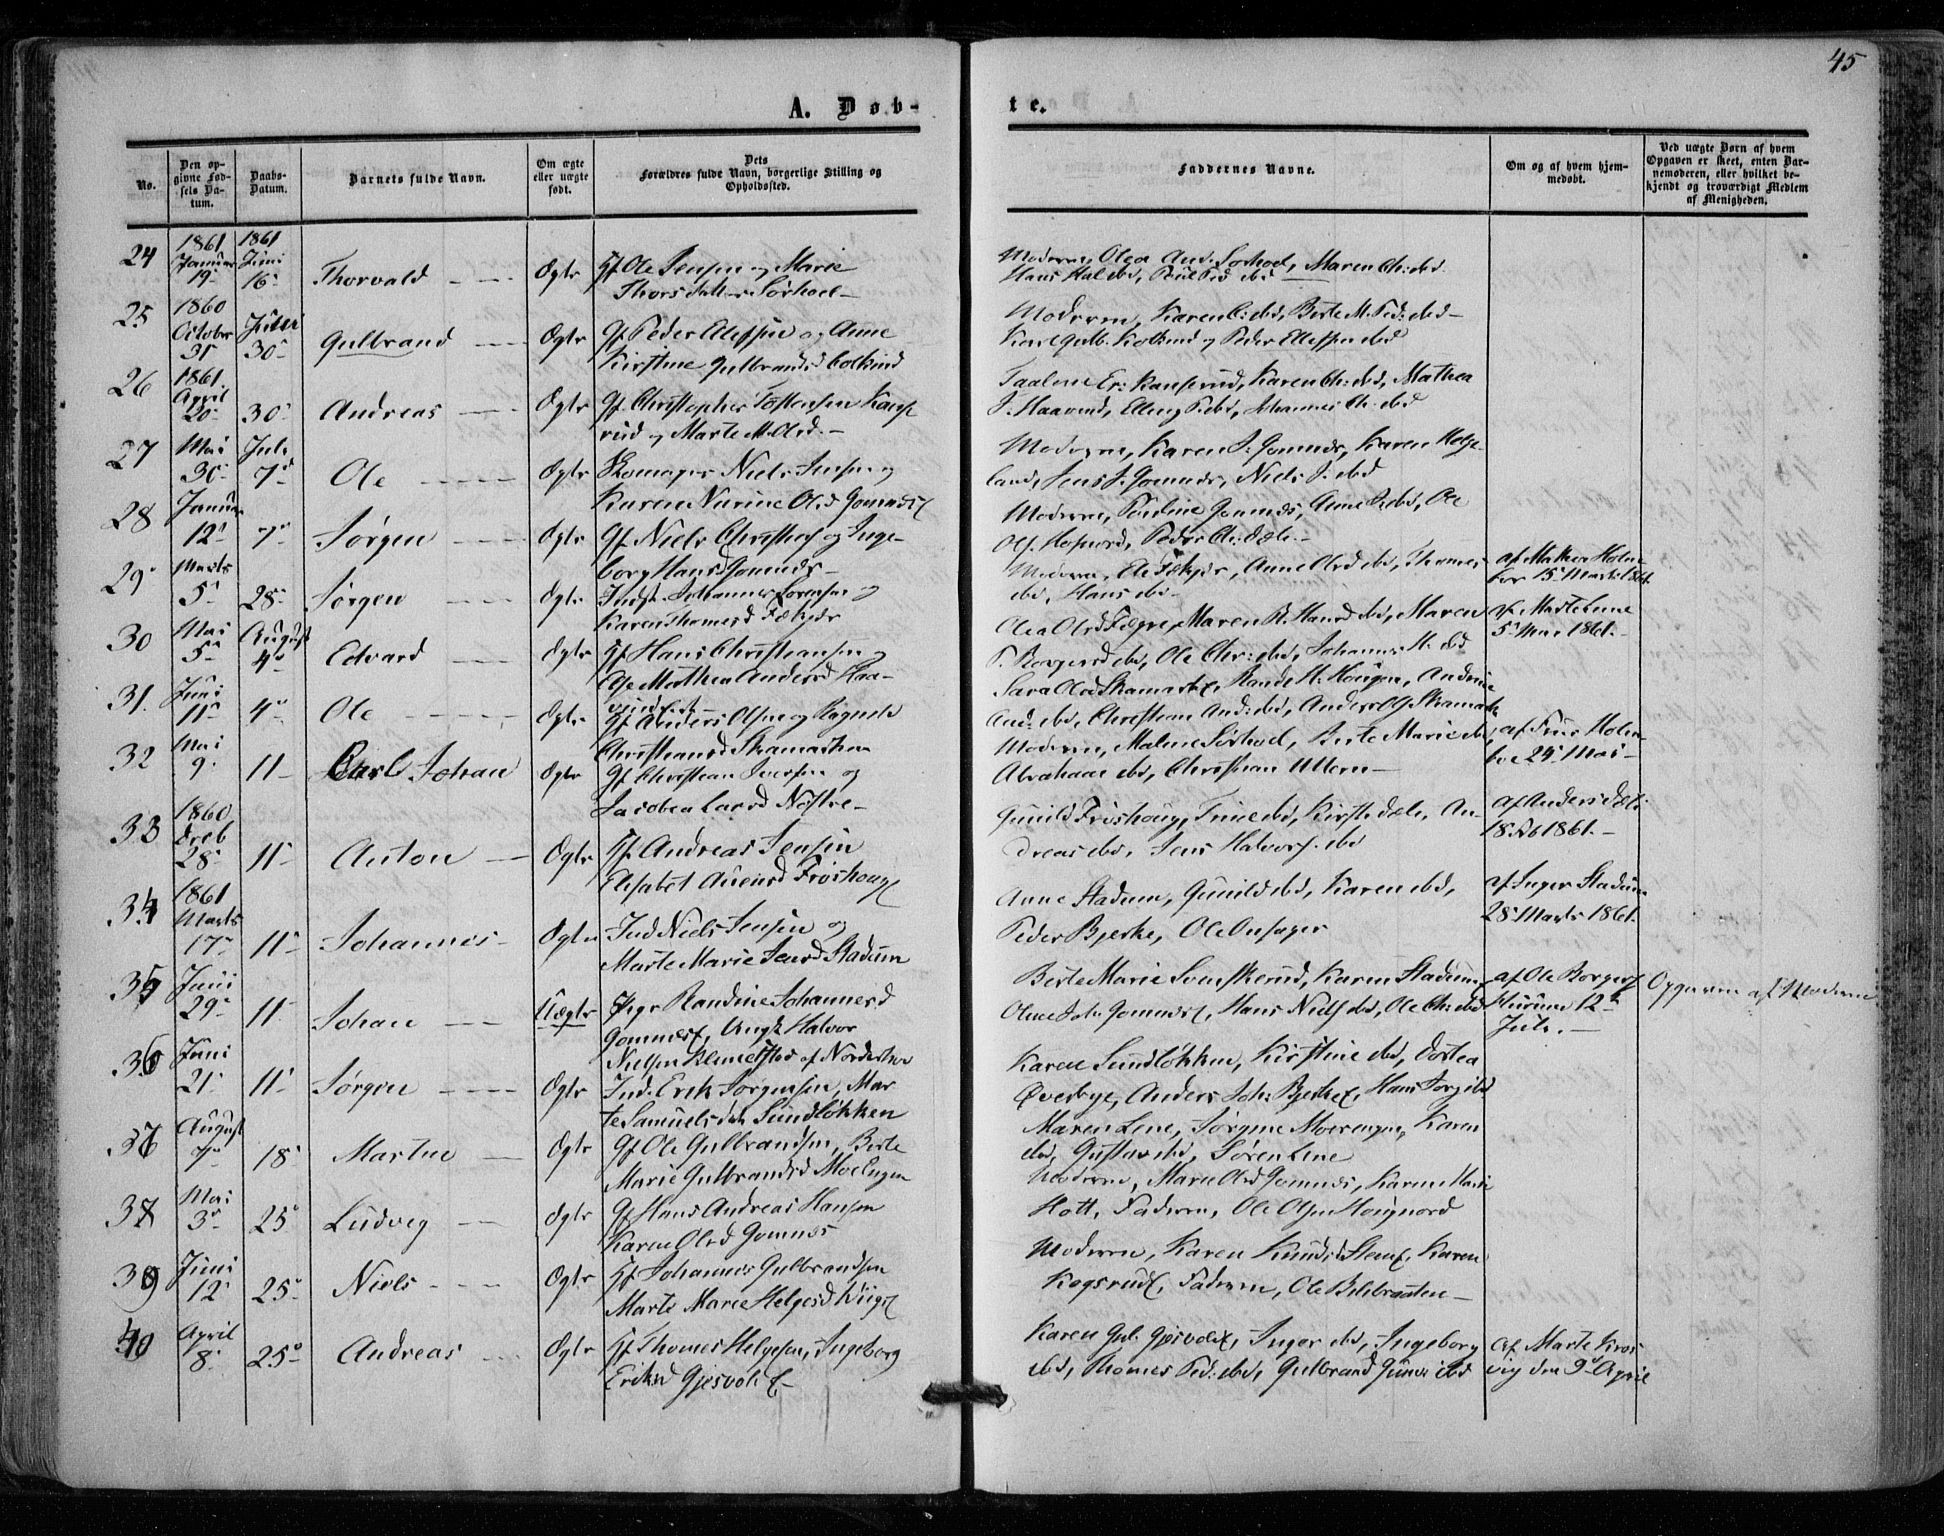 45
A. Døb-
te.
No.
Den opgivne Fødsels Datum.
Daabs-Datum.
Barnets fulde Navn.
Om ægte eller uægte født.
Dets Forældres fulde Navn, borgerlige Stilling og Opholdssted.
Faddernes Navne.
Om og af hvem hjemmedøbt.
Ved uægte Børn af hvem Opgaven er skeet, enten Barnemoderen, eller hvilket bekjendt og troværdigt Medlem af Menigheden.
24 1861 Januar 19 1861 Juni 16 Thorvald Ægte Gf Ole Jensen og Marie
Thorsdatter Sørhoel
Moderen, Olea And. Sørhoel, Maren Chr: ibd.
Hans Hal ibd, Poul Ped ibd
25 1860 October 31 Julii 30 Gulbrand Ægte Gf Peder Ellefsen og Anne
Kirstine Gulbrandsd Kolkind
Moderen, Karen C: ibd, Berte M. Ped: ibd
Karl Gulb. Kolkind og Peder Ellefsen ibd
26 1861 April 20 30 Andreas Ægte Gf Christopher Tostensen Kanse
rud og Marte M. Olsd.
Taalene Er: Kanserud, Karen Chr: ibd, Mathea
J. Haavind, Elling P. ibd, Johannes Chr: ibd
27 Mai 30 Juli 7 Ole Ægte Skomager Niels Jensen og
Karen Narine Olsd Gomnæs
Moderen, Karen J. Gomnæs, Karen Helge
land, Jens J. Gomnæs, Niels J. ibd
28 Januar 12 7 Jørgen Ægte Gf Niels Christophs og Inge-
borg Hansd Gomnæs
Moderen, Pauline Gomnæs, Anne P. ibd, Ole
Ols. Hofnord, Peder Chr: Dæli
29 Marts 5 28 Jørgen Ægte Inds. Johannes Sørensen og
Karen Thomesd Fækjær
Moderen, Ole Fækjær, Anne Olsd ibd, Thomas
ibd, Hans ibd
af Mathea Holm
boe 15 Marts 1861
30 Mai 5 August 4 Edvard Ægte Gf Hans Christiansen og
Ase Mathea Andersd Haa-
Olea Olsd Fægre, Maren R. Hansd ibd, Maren
P. Borgersd ibd, Ole Chr: ibd, Johannes H. ibd
af Marte Lene
5 Mai 1861.
31. Juni 11 4 Ole Ægte Gf Anders Olsen og Ragnild
Christiansd Skamarken
Sara Olsd Skamark, Rande H. Hougen, Andrine
And: ibd, Christian And: ibd, Anders Og Skamark
32 Mai 9 11 Carl Johan Ægte Gf Christian Iversen og
Jacobea Larsd Nøstre
Moderen, Maline Sørhoel, Berte Marie ibd,
Abraham ibd, Christian Ullern
af Frue Holm
boe 25 Mai
33 1860 Dceb 28 11 Anton Ægte Gf Andreas Jensen
Elisabet Auensd Frøshoug
Gunild Frøshoug, Trine ibd, Kirsti Dæli, An-
dreas ibd, Jens Halvors. ibd
af Anders Dæli
18 Feb 1861.
34 1861 Marts 17 11 Johannes Ægte Ind Niels Jensen og
Marte Marie Jensd Stadum
Anne Stadum, Gunild ibd, Karen ibd,
Peder Bjerke, Ole Onsager
af Inger Stadum
28 Marts 1861.
35 Juni 29 11 Johan Uægte Pige Randine Johannesd
Gomnæs, Ungk Halvor
Nielsen Klemetstad af Norderhov
Berte Marie Svenskerud, Karen Stadum,
Oline Joh. Gomnæs, Hans Niels ibd, Ole Chr: ibd
af Ole Borgers
Hurum 12te
Juli.
Opgaven af Moderen
36 Juni 21 11 Jørgen Ægte Ind. Erik Jørgensen, Mar
te Samuelsdtr Sundløkken
Karen Sundløkken, Kirstine ibd, Dortea
Øverbye, Anders Joh: Bjerke, Hans Jørg ibd
37 August 7 18 Martin Ægte Gf Ole Gulbrandsen, Berte
Marie Gulbrandsd Moe Engen
Maren Lene, Jørgine Moeengen, Karen
ibd, Gustav ibd, Søren Lene
38 Mai 3 25 Ludvig Ægte Gf Hans Andreas Hansen
Karen Olsd Gomnæs
Moderen, Marie Olsd Gomnæs, Karen Marie
Hott, Faderen, Ole Olsen Hougnord
39 Juni 12 25 Niels Ægte Gf Johannes Gulbrandsen
Marte Marie Helgesd Viig
Moderen, Karen Knudsd Steen, Karen
Kogsrud, Faderen, Ole Bilibraaten
40 April 8 25 Andreas Ægte Gf Thomes Helgesen, Ingeborg
Eriksd Gjesvold
Karen Gul. Gjesvold, Inger ibd, Ingeborg
ibd, Thomes Ped: ibd, Gulbrand Gunn: ibd
af Marte Kros
vig den 9 April